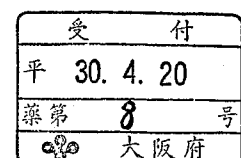 受付
平 30. 4. 20
薬第 8 号
大阪府